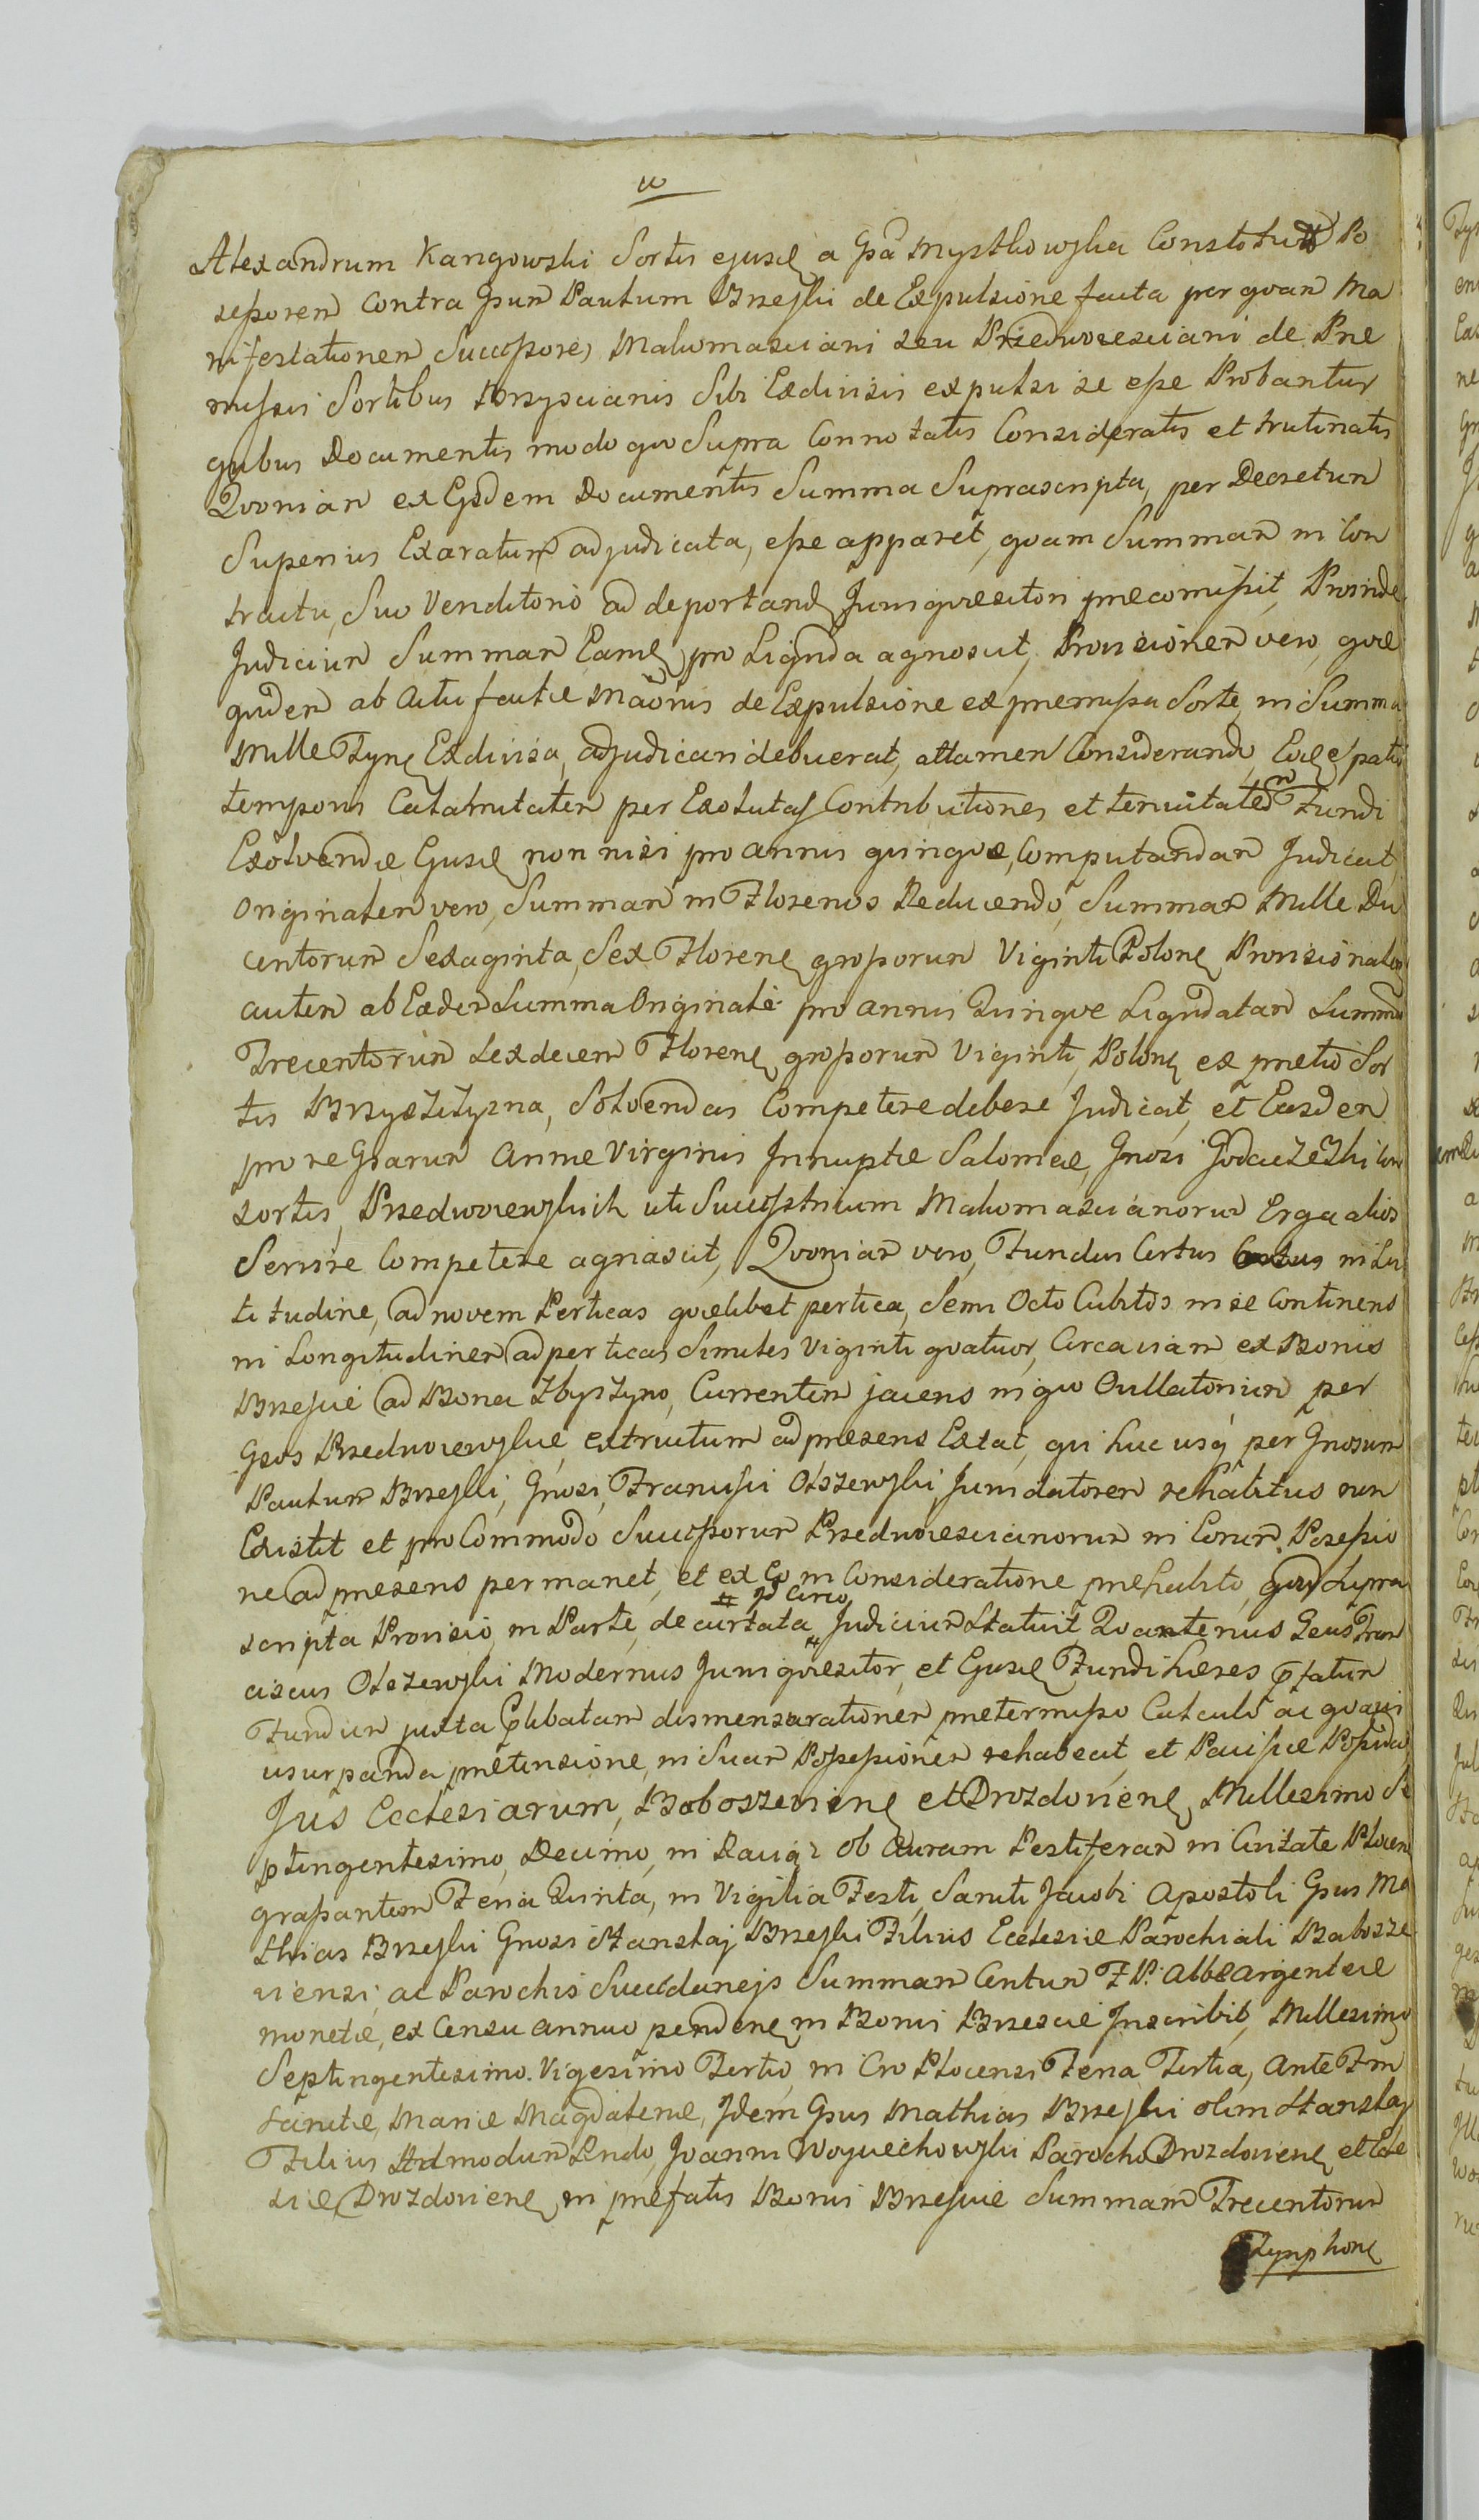 Alexandrum Kangowski Sortis ejusd a Gsa Mystkowska Constotutu Po
sessorem contra Gsum Paulum Brzeski de Expulsione facta per quam Ma
nifestationem Successores Makomasciani seu Przedwoiesciani de Pre
missis Sortibus Brzyscianis Sibi Exdivisis expulsi se esse Probantur
quibus Documentis modo quo Supra Connotatis Consideratis et trutinatis
Quoniam ex Eisdem Documentis Summa Suprascripta, per Decretum
Superius Exaratum adjudicata, esse apparet, quam Summam in Con
tractu, Suo Venditorio ad deportand Jurisquaesitori praecomisit, Proinde
Judicium Summam Eamd pro Liquida agnoscit, Provisionem vero, quae
quidem ab Actu factae Maonis de Expulsione ex praemissa Sorte, in Summa
Mille Tynf Exdivisa, adjudicari debuerat, attamen Considerando, Ejusd spatii
temporis Calamitatem per Exolutas Contributiones et tenuitatem Fundi
Exolvendae Ejusd non nisi pro annis quinque, Computandam Judicat,
Originalem vero, Summam in Florenos Reducendo, Summam Mille Du
centorum Sexaginta, Sex Floren grossorum Viginti Polon Provisionalem
autem ab Eadem Summa Originali pro annis Quinque Liquidatam Summam
Trecentorum Sexdecem Floren grossorum Viginti, Polon ex pretio Sor
tis Brzyszczyzna, Solvendas Competere debere Judicat, et Easdem
pro re Gsarum Annae Virginis Innuptae Salomeae, Gnosi Godaczeski Con
sortis, Przedwoiewskich uti Successtricum Makomascianorum Erga alios
Servire Competere agnascit, Quoniam vero, Fundus Certus in La
titudine, ad novem Perticas quaelibet pertica, Semi Octo Cubitos in se Continens
in Longitudinem ad perticas Similes Viginti quatuor, Circa viam ex Bonis
Brzescie ad Bona Zbyszyno, Currentem jacens in quo Oullatorium per
Gsos Przedwoiewskie, extructum ad praesens Extat, qui huc usq per Gnosum
Paulum Brzeski, Gnosi, Francisci Olszewski Jurisdatorem rehabitus non
Existit et pro Commodo Successorum Przedwoiescianorum in Eorum Posessio
ne ad praesens permanet, et ex Eo in Consideratione praehabito, quod Supra
scripta Provisio in Parte, decurtata # Judicium Statuit Quantenus Gsus Fran
ciscus Olszewski Modernus Jurisquaesitor, et Ejusd Fundi haeres pfatum
Fundum juxta plibatam dismensurationem praetermisso Calculo ac quavis
usurpanda praetensione, in Suam Possessionem rehabeat, et Pacifice Possideat
Jus Ecclesiarum, Baboszeviens et Drozdoviens, Millesimo Se
ptingentesimo, Decimo, in Raciąz ob Auram Pestiferam in Civitate Plocen
grassantem Feria Quinta, in Vigilia Festi, Sancti Jacobi Apostoli Gsus Ma
thias Brzeski Gnosi Stanslaj Brzeski Filius Ecclesiae Parochiali Babosze
viensi, ac Parochis Succedanejs Summam Centum F P. Albae Argenteae
monetae, ex Censu annuo penden in Bonis Brzescie Inscribit, Millesimo
Septingentesimo Vigesimo Tertio, in Cro Plocensi Feria Tertia, Ante Ftm
Sanctae, Mariae Magdalenae, Idem Gsus Mathias Brzeski olim Stanslaj
Filius Admodum Rndo, Joanni Woyciechowski Parocho Drozdoviens et Ecle
siae Drozdoviens in praefatis Bonis Brzescie Summam Trecentorum
Tymphon